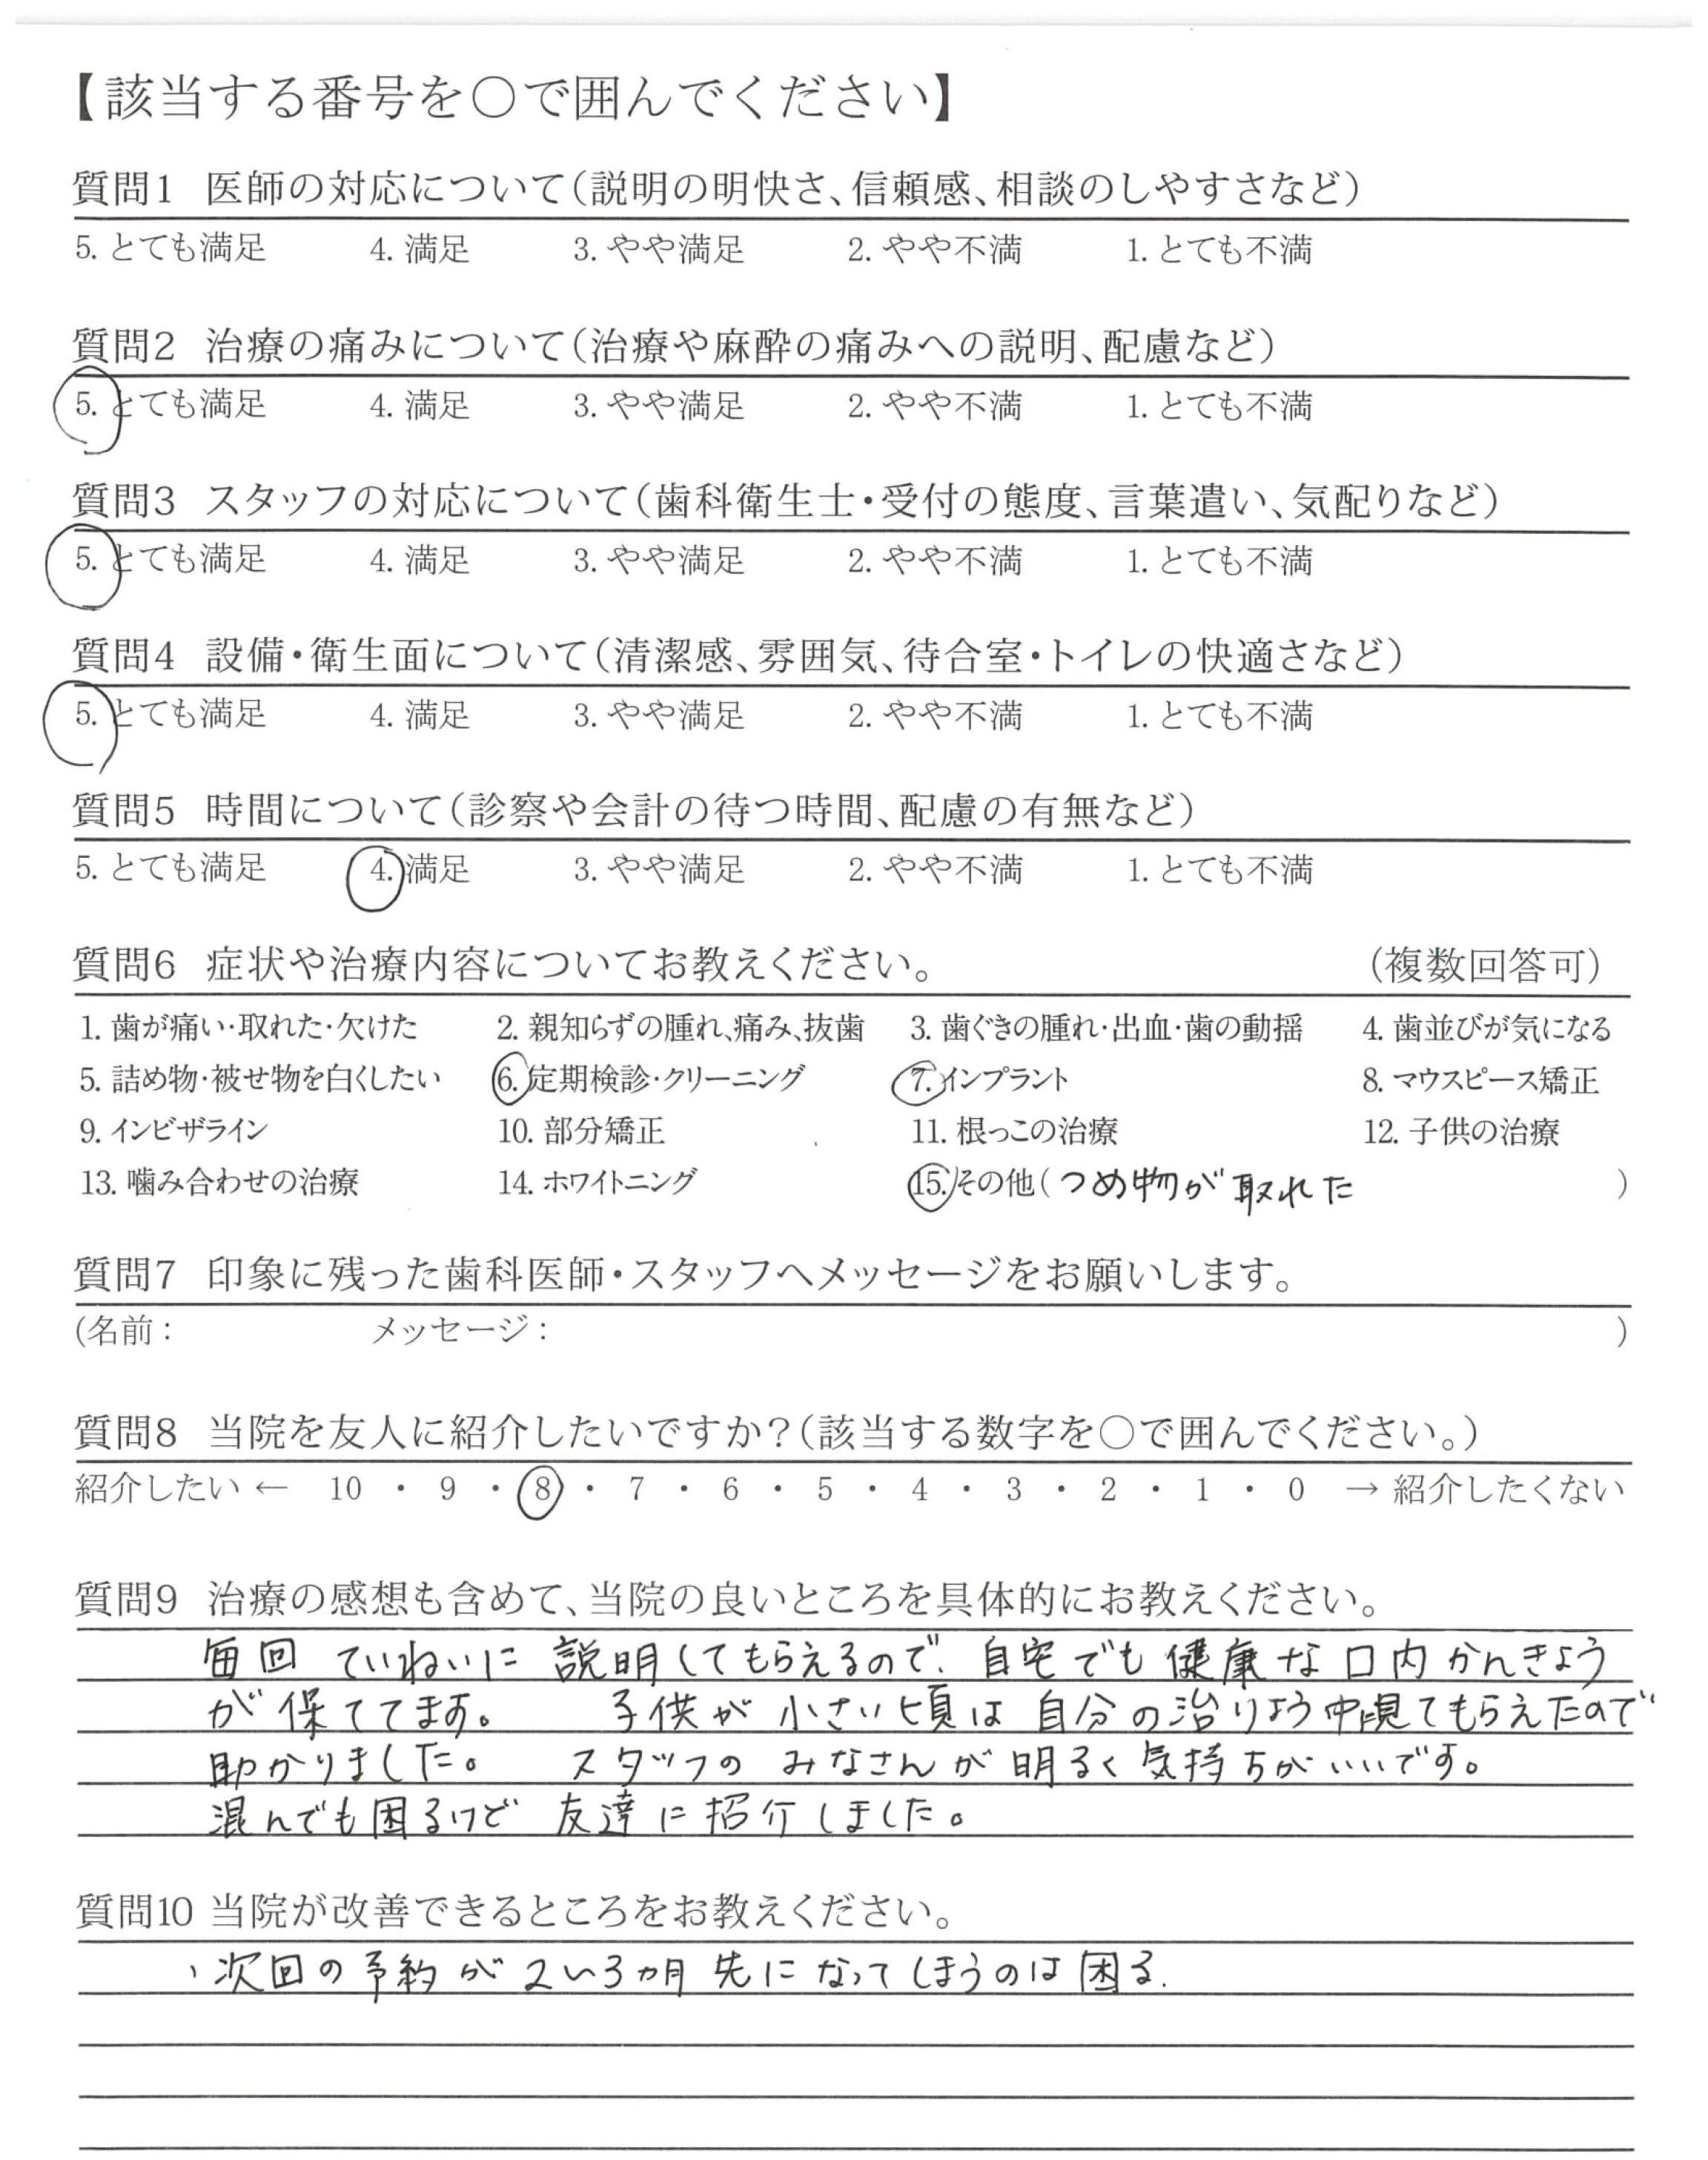 【該当する番号を○で囲んでください】
質問1 医師の対応について(説明の明快さ、信頼感、相談のしやすさなど)
5. とても満足 4. 満足 3. やや満足 2. やや不満 1. とても不満
質問2 治療の痛みについて(治療や麻酔の痛みへの説明、配慮など)
5. とても満足 4. 満足 3. やや満足 2. やや不満 1. とても不満
質問3 スタッフの対応について(歯科衛生士・受付の態度、言葉遣い、気配りなど)
5. とても満足 4. 満足 3. やや満足 2. やや不満 1. とても不満
質問4 設備・衛生面について(清潔感、雰囲気、待合室・トイレの快適さなど)
5. とても満足 4. 満足 3. やや満足 2. やや不満 1. とても不満
質問5 時間について(診察や会計の待つ時間、配慮の有無など)
5. とても満足 4. 満足 3. やや満足 2. やや不満 1. とても不満
質問6 症状や治療内容についてお教えください。 (複数回答可)
1. 歯が痛い・取れた・欠けた 2. 親知らずの腫れ、痛み、抜歯 3. 歯ぐきの腫れ・出血・歯の動揺 4. 歯並びが気になる
5. 詰め物・被せ物を白くしたい 6. 定期検診・クリーニング 7. インプラント 8. マウスピース矯正
9. インビザライン 10. 部分矯正 11. 根っこの治療 12. 子供の治療
13. 噛み合わせの治療 14. ホワイトニング 15. その他(つめ物が取れた )
質問7 印象に残った歯科医師・スタッフへメッセージをお願いします。
(名前: メッセージ: )
質問8 当院を友人に紹介したいですか?(該当する数字を○で囲んでください。)
紹介したい ← 10 ・ 9 ・ 8 ・ 7 ・ 6 ・ 5 ・ 4 ・ 3 ・ 2 ・ 1 ・ 0 → 紹介したくない
質問9 治療の感想も含めて、当院の良いところを具体的にお教えください。
毎回 ていねいに 説明してもらえるので、自宅でも健康な口内かんきょう
が保ててます。 子供が小さい頃は自分の治りょう中見てもらえたので
助かりました。 スタッフのみなさんが明るく気持ちがいいです。
混んでも困るけど 友達に紹介しました。
質問10 当院が改善できるところをお教えください。
、次回の予約が2〜3カ月先になってしまうのは困る.